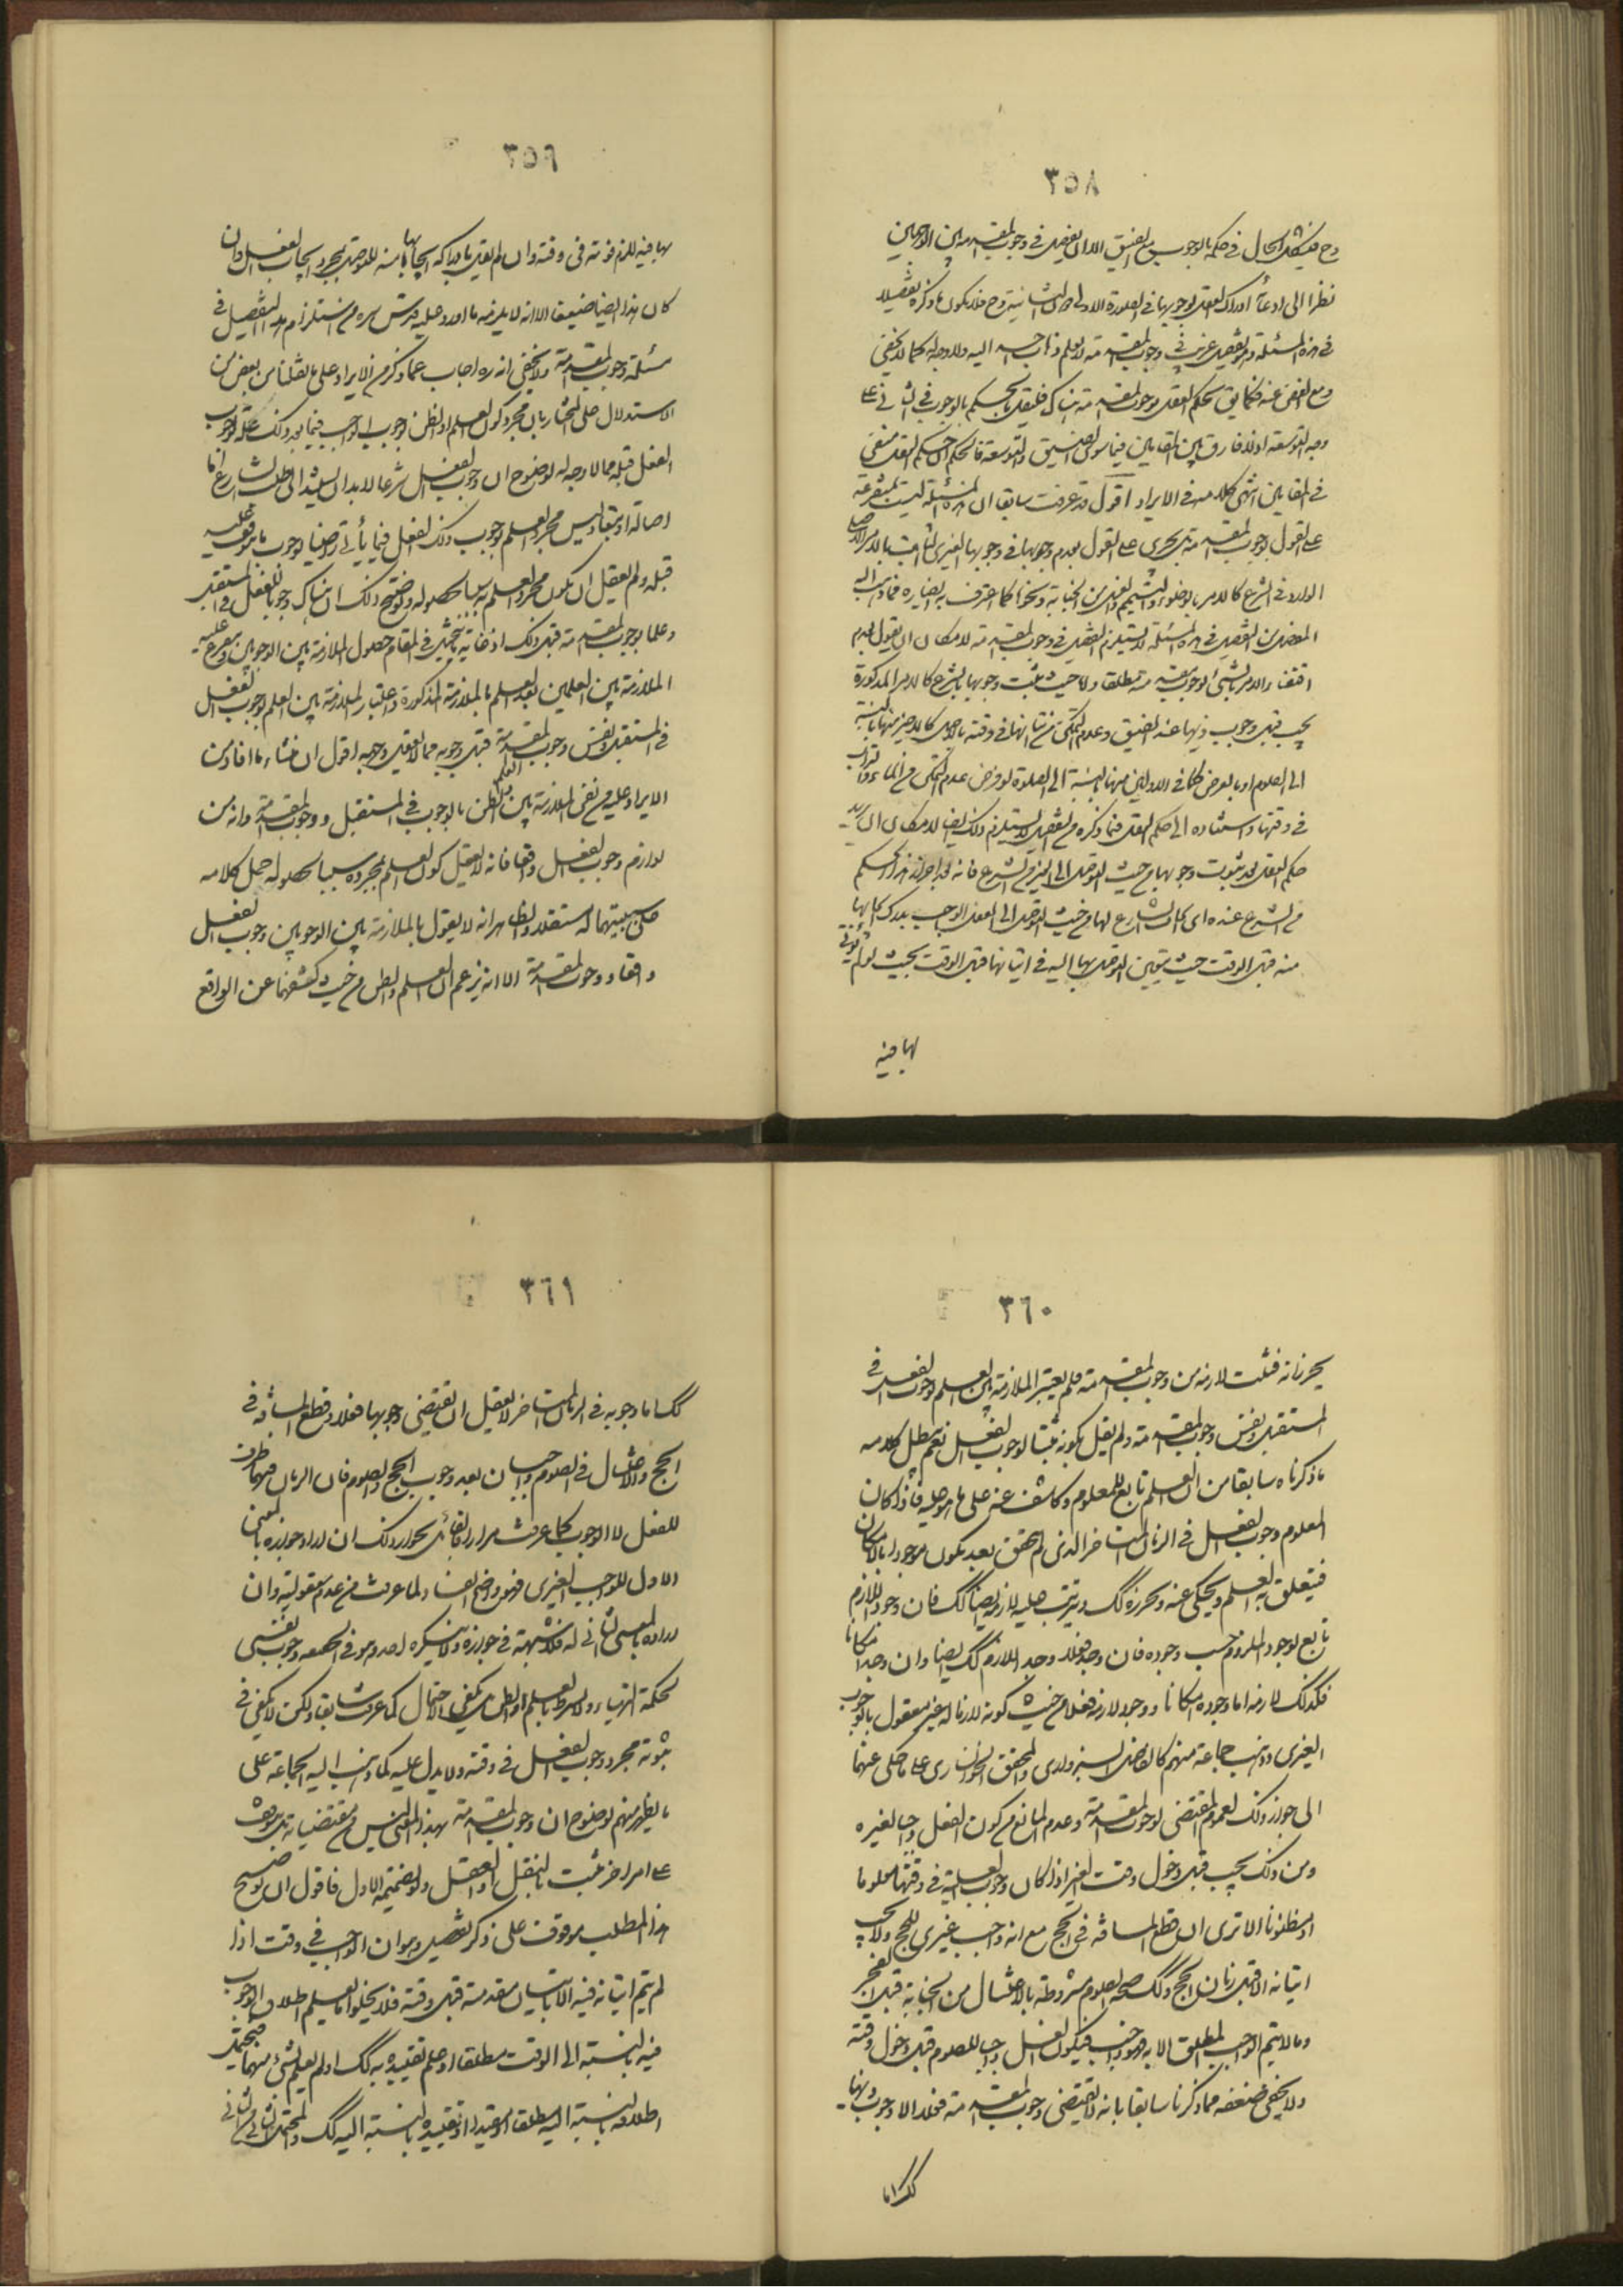 ٣٥٨
في حكمه بالوجوب مع الضيق
نظرا الى ادعاء ادراك العقل لوجوبها في الصورة الاولى دون الثانية وح فلا يكون ما ذكره تفصيلا
في هذه المسئلة وهو تفصيل غريب في وجوب المقدمة لم يعلم ذهاب احد اليه ولا وجه له كما لا يخفى
ومع الغض عنه فكما يحكم العقل بوجوب المقدمة هناك فليقل بحكمه بالوجوب في الثاني على
وجه التوسعة اذ لا فارق بين المقامين فيما سوى الضيق والتوسعة فالحكم
في المقامين انتهى كلامه في الايراد اقول قد عرفت سابقا ان هذه المسئلة ليست متفرعة
على القول بوجوب المقدمة بل يجري على القول بعدم وجوبها في وجوبها الغيري الثابت بالامر
الوارد في الشرع كالامر بالوضوء والتيمم والغسل من الجنابة ونحوها كما اعترف به
المفصل من التفصيل في هذه المسئلة لا يستلزم التفصيل في وجوب المقدمة لامكان ان يقول بعدم
اقتضاء الامر بالشيء لوجوب مقدمته مطلقا
يجب قبل وجوب ذيها عند الضيق وعدم التمكن من اتيانها في وقته
الى الصوم او بالعرض كما في الاولين منها بالنسبة الى الصلوة لو فرض عدم التمكن من الماء
في وقتها واستناده الى حكم العقل فيما ذكره من التفصيل لا يستلزم ذلك ايضا لامكان ان يريد
حكم العقل بعد ثبوت وجوبها من حيث التوصل الى الغير من الشرع
من الشرع عنده
منه قبل الوقت حيث يتعين التوصل بها اليه في اتيانها قبل الوقت بحيث لو لم يؤت
بها فيه
٣٥٩
بها فيه للزم فوته في وقته
كان هذا ايضا ضعيفا الا انه لا يلزمه ما اورده عليه
مسئلة وجوب المقدمة ولا يخفى انه ره اجاب عما ذكر من الايراد على ما نقلنا من بعض من
الاستدلال على المختار بان مجرد كون العلم او الظن بوجوب الواجب فيما بعد ذلك علة لوجوب
الفعل قبله مما لا وجه له لوضوح ان وجوب الفعل شرعا لا بد ان يستند الى طلب الشارع
اصالة او تبعا وليس مجرد العلم بوجوب ذلك الفعل فيما يأتي قاضيا بوجوب ما يتوقف عليه
قبله ولم يعقل ان يكون مجرد العلم به سببا لحصوله
وعلما بوجوب المقدمة قبل ذلك اذ غاية ما يتخيل في المقام حصول الملازمة بين الوجوبين ويتفرع عليه
الملازمة بين العلمين بعد العلم بالملازمة المذكورة واعتبار الملازمة بين العلم بوجوب الفعل
في المستقبل ونفس وجوب المقدمة قبل وجوبه مما لا يعقل وجهه اقول ان منشاء ما افاده من
الايراد عليه من نفي الملازمة بين العلم والظن بالوجوب في المستقبل ووجوب المقدمة وانه من
لوازم وجوب الفعل واقعا فانه لا يعقل كون العلم بمجرده سببا لحصوله حمل كلامه
على سببيتهما له مستقلا والظاهر انه لا يقول بالملازمة بين الوجوبين وجوب الفعل
واقعا ووجوب المقدمة الا انه يزعم ان العلم والظن من حيث كشفهما عن الواقع
٣٦٠
يحرزانه فثبت لازمه من وجوب المقدمة فلم يعتبر الملازمة بين العلم بوجوب الفعل في
المستقبل ونفس وجوب المقدمة ولم يقل بكونه مثبتا لوجوب الفعل نعم يبطل كلامه
ما ذكرناه سابقا من ان العلم تابع للمعلوم وكاشف عنه على ما هو عليه فاذا كان
المعلوم وجوب الفعل في الزمان المتاخر الذي لم يتحقق بعد يكون موجودا بالامكان
فيتعلق به العلم ويحكي عنه ويحرزه كك ويترتب عليه لازمه ايضا كك فان وجود اللازم
تابع لوجود الملزوم حسب وجوده فان وجد فعلا وجد اللازم كك ايضا وان وجد امكانا
فكذلك لازمه اما وجوده امكانا ووجود لازمه فعلا من حيث كونه لازما له غير معقول بالوجوب
الغيري وذهب جماعة منهم كالفاضل السبزواري والمحقق الخوانساري على ما حكي عنهما
الى جواز ذلك لعموم المقتضي لوجوب المقدمة وعدم المانع من كون الفعل واجبا لغيره
ومن ذلك يجب قبل دخول وقت الغير اذا كان وجوب الغاية في وقتها معلوما
او مظنونا الا ترى ان قطع المسافة في الحج مع انه واجب غيري للحج ولا يجب
اتيانه الا قبل زمان الحج وكك صحة الصوم مشروطة بالاغتسال من الجنابة قبل الفجر
وما لا يتم الواجب المطلق الا به فهو واجب فيكون الغسل واجبا للصوم قبل دخول وقته
ولا يخفى ضعفه مما ذكرنا سابقا بانه لا يقتضي وجوب المقدمة فعلا الا وجوب ذيها
كك اما
٣٦١
كك اما وجوبه في الزمان المتاخر لا يعقل ان يقتضي وجوبها فعلا وقطع المسافة في
الحج والاغتسال في الصوم واجبان بعد وجوب الحج والصوم فان الزمان فيهما ظرف
للفعل لا الوجوب كما عرفت مرارا والقائل بجواز ذلك ان اراد جوازه بالمعنى
الاول للواجب الغيري فهو واضح الفساد لما عرفت من عدم معقوليته وان
اراده بالمعنى الثاني له فلا شبهة في جوازه ولا ينكره احد وهو في الحقيقة وجوب نفسي
لحكمة التهياء ولا يشترط بالعلم او الظن بل يكفي الاحتمال كما عرفت سابقا ولكن لا يكفي في
ثبوته مجرد وجوب الفعل في وقته ولا يدل عليه كما ذهب اليه الجماعة على
ما يظهر منهم لوضوح ان وجوب المقدمة بهذا المعنى ليس من مقتضياته بل يتوقف
على امر اخر يثبت بالنقل او العقل ولو بضميمة الاول فاقول ان توضيح
هذا المطلب موقوف على ذكر تفصيل وهو ان الواجب في وقت اذا
لم يتم اتيانه فيه الا باتيان مقدمته قبل وقته فلا يخلوا اما يعلم اطلاق الوجوب
فيه بالنسبة الى الوقت مطلقا او علم تقييده به كك او لم يعلم شيء منهما فيحتمل
اطلاقه بالنسبة اليه مطلقا او مقيدا او تقييده بالنسبة اليه كك